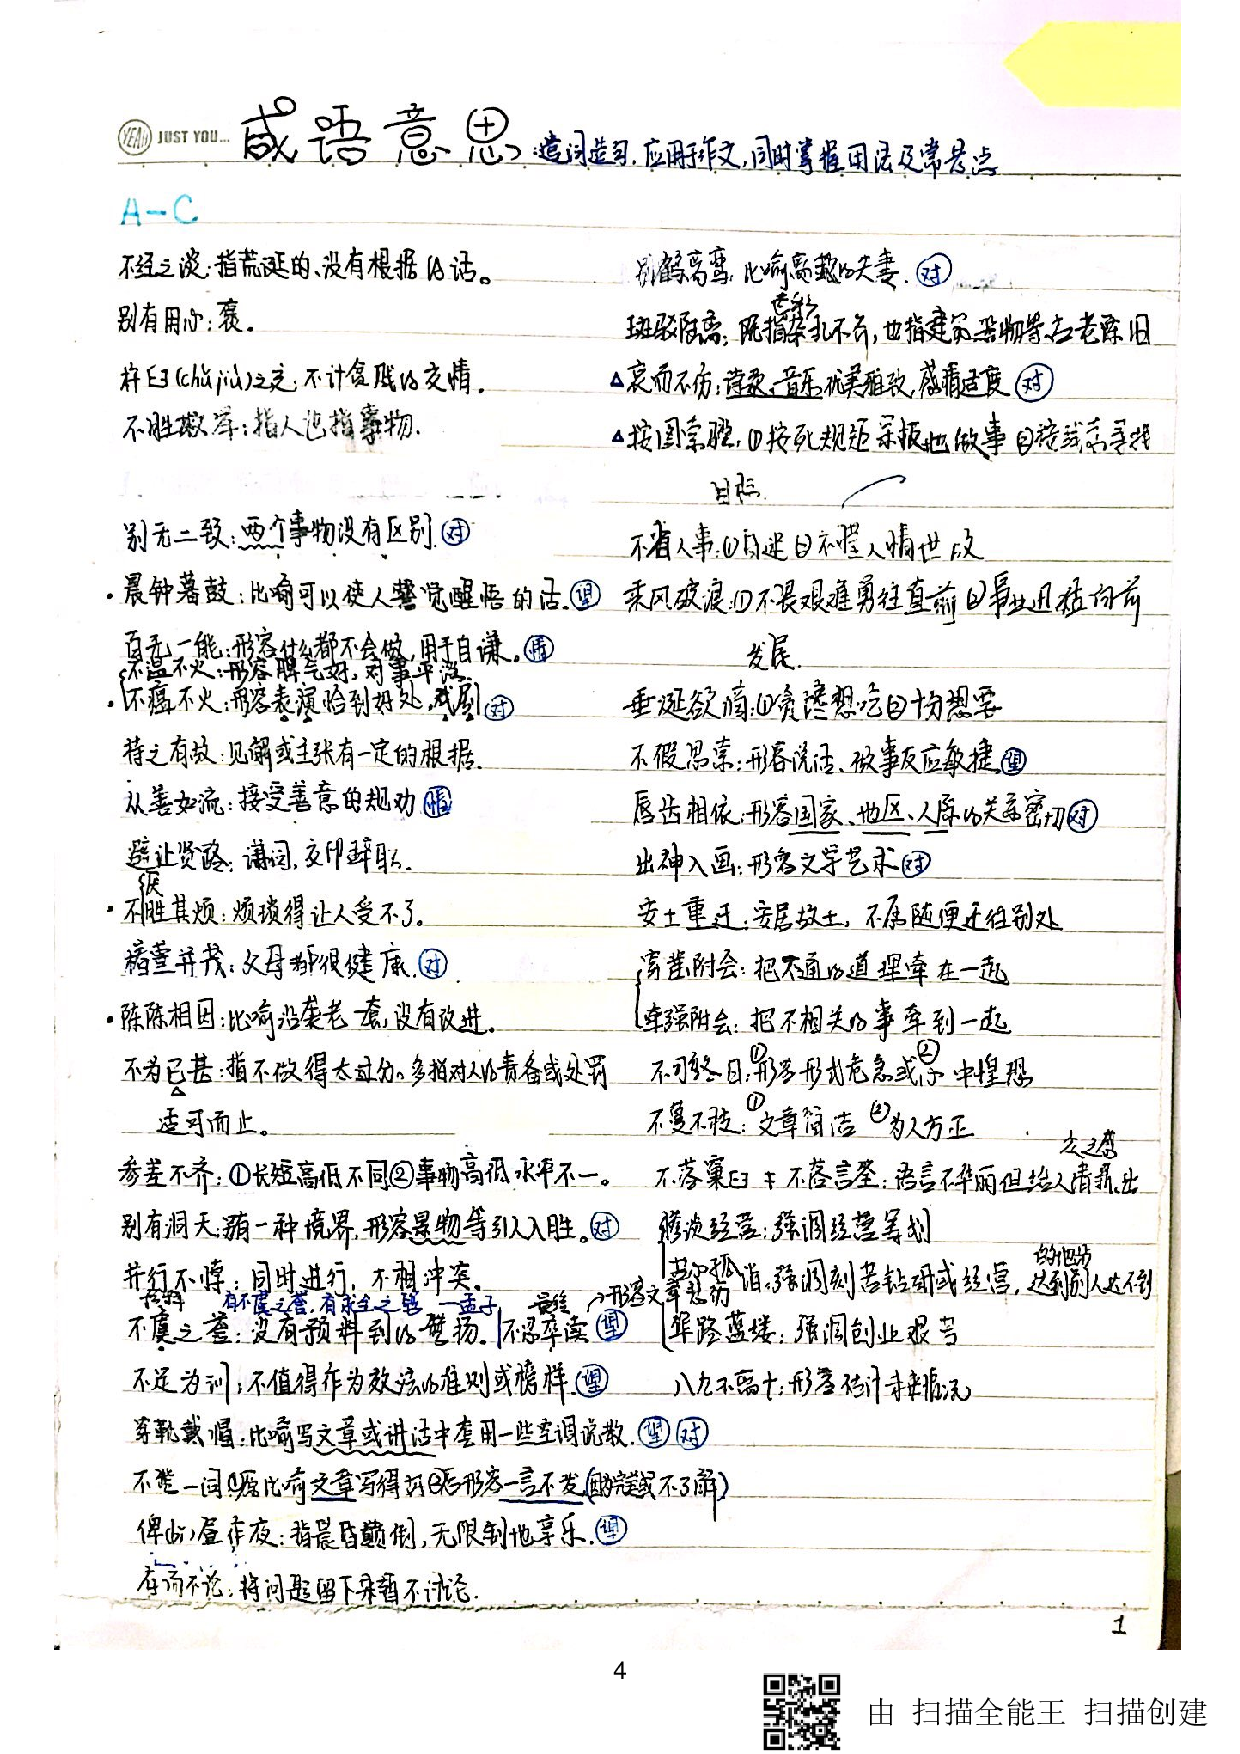 JUST YOU...
成语意思
造词造句,应用于作文,同时掌握用法及常考点
A-C
不经之谈:指荒诞的、没有根据的话。
别有用心:褒。
杵臼(chǔ jiù)之交:不计贫贱的交情。
不胜枚举:指人也指事物.
别无二致:两个事物没有区别.对
晨钟暮鼓:比喻可以使人警觉醒悟的话.望
百无一能:形容什么都不会做,用于自谦。情
不温不火:形容脾气好,对事平淡.
不瘟不火:形容表演恰到好处,戏剧 对
持之有故:见解或主张有一定的根据.
从善如流:接受善意的规劝
避让贤路:谦词,交印辞职.
不胜其烦:烦琐得让人受不了。
椿萱并茂:父母都很健康.对
陈陈相因:比喻沿袭老一套,没有改进.
不为已甚:指不做得太过分。多指对人的责备或处罚
适可而止。
参差不齐:①长短高低不同②事物高低水平不一。
别有洞天:另有一种境界,形容景物等引人入胜。对
并行不悖:同时进行,不相冲突.
有不虞之誉,有求全之毁 —孟子
不虞之誉:没有预料到的赞扬.
不忍卒读 望
→形容文章悲伤
不足为训:不值得作为效法的准则或榜样.望
穿靴戴帽:比喻写文章或讲话中套用一些空洞说教.望 对
不赞一词:①原比喻文章写得好②后形容一言不发
俾昼作夜:指晨昏颠倒,无限制地享乐.望
存而不论:将问题留下来暂不讨论.
别鹤离鸾:比喻离散的夫妻.对
斑驳陆离:既指杂乱不齐,也指建筑器物等古老陈旧
△哀而不伤:诗歌、音乐优美雅致,感情适度 对
△按图索骥:①按死规矩呆板地做事②按线索寻找
目标.
不省人事:①昏迷②不懂人情世故
乘风破浪:①不畏艰难勇往直前②事业迅猛向前
发展.
垂涎欲滴:①贪馋想吃②十分想要
不假思索:形容说话、做事反应敏捷 望
唇齿相依:形容国家、地区、人际的关系密切 对
出神入画:形容文学艺术 对
安土重迁:安居故土,不愿随便迁往别处
穿凿附会:把不通的道理牵在一起
牵强附会:把不相关的事牵到一起
不可终日:①形容形式危急或②心中惶恐
不蔓不枝:①文章简洁②为人方正
不落窠臼 不落言筌:语言不华丽但给人清新、出
尘之感
惨淡经营:强调经营筹划
苦心孤诣:强调刻苦钻研或经营,达到别人达不到
的地步
筚路蓝缕:强调创业艰苦
八九不离十:形容估计未来情况
1
4
由 扫描全能王 扫描创建